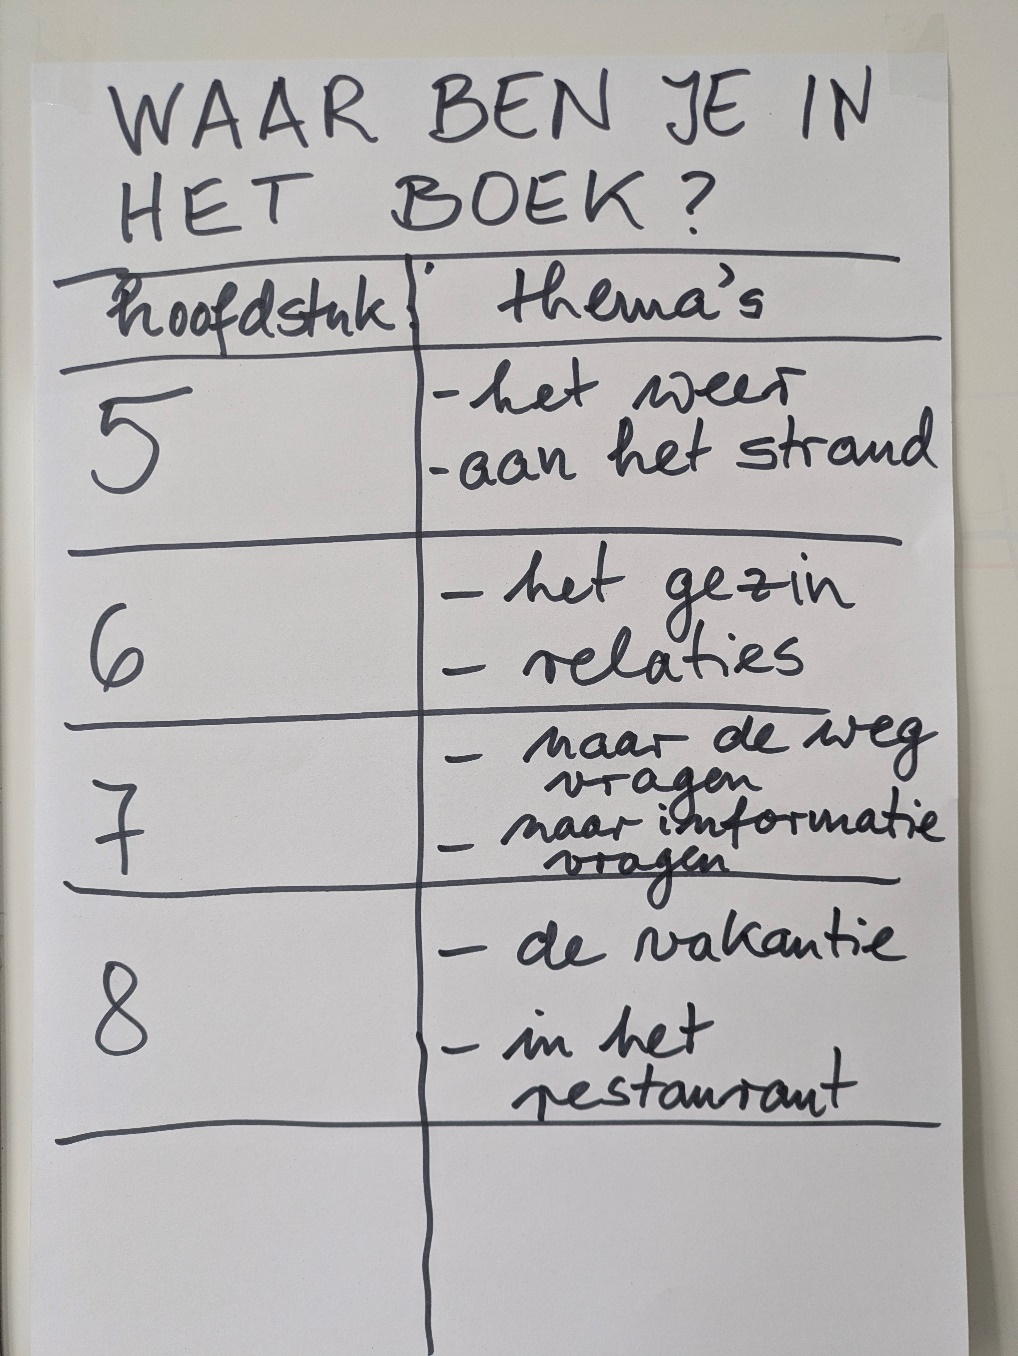 WAAR BEN JE IN
HET BOEK?
hoofdstuk thema's
5 - het weer
- aan het strand
6 - het gezin
- relaties
7 - naar de weg
vragen
- naar informatie
vragen
8 - de vakantie
- in het
restaurant